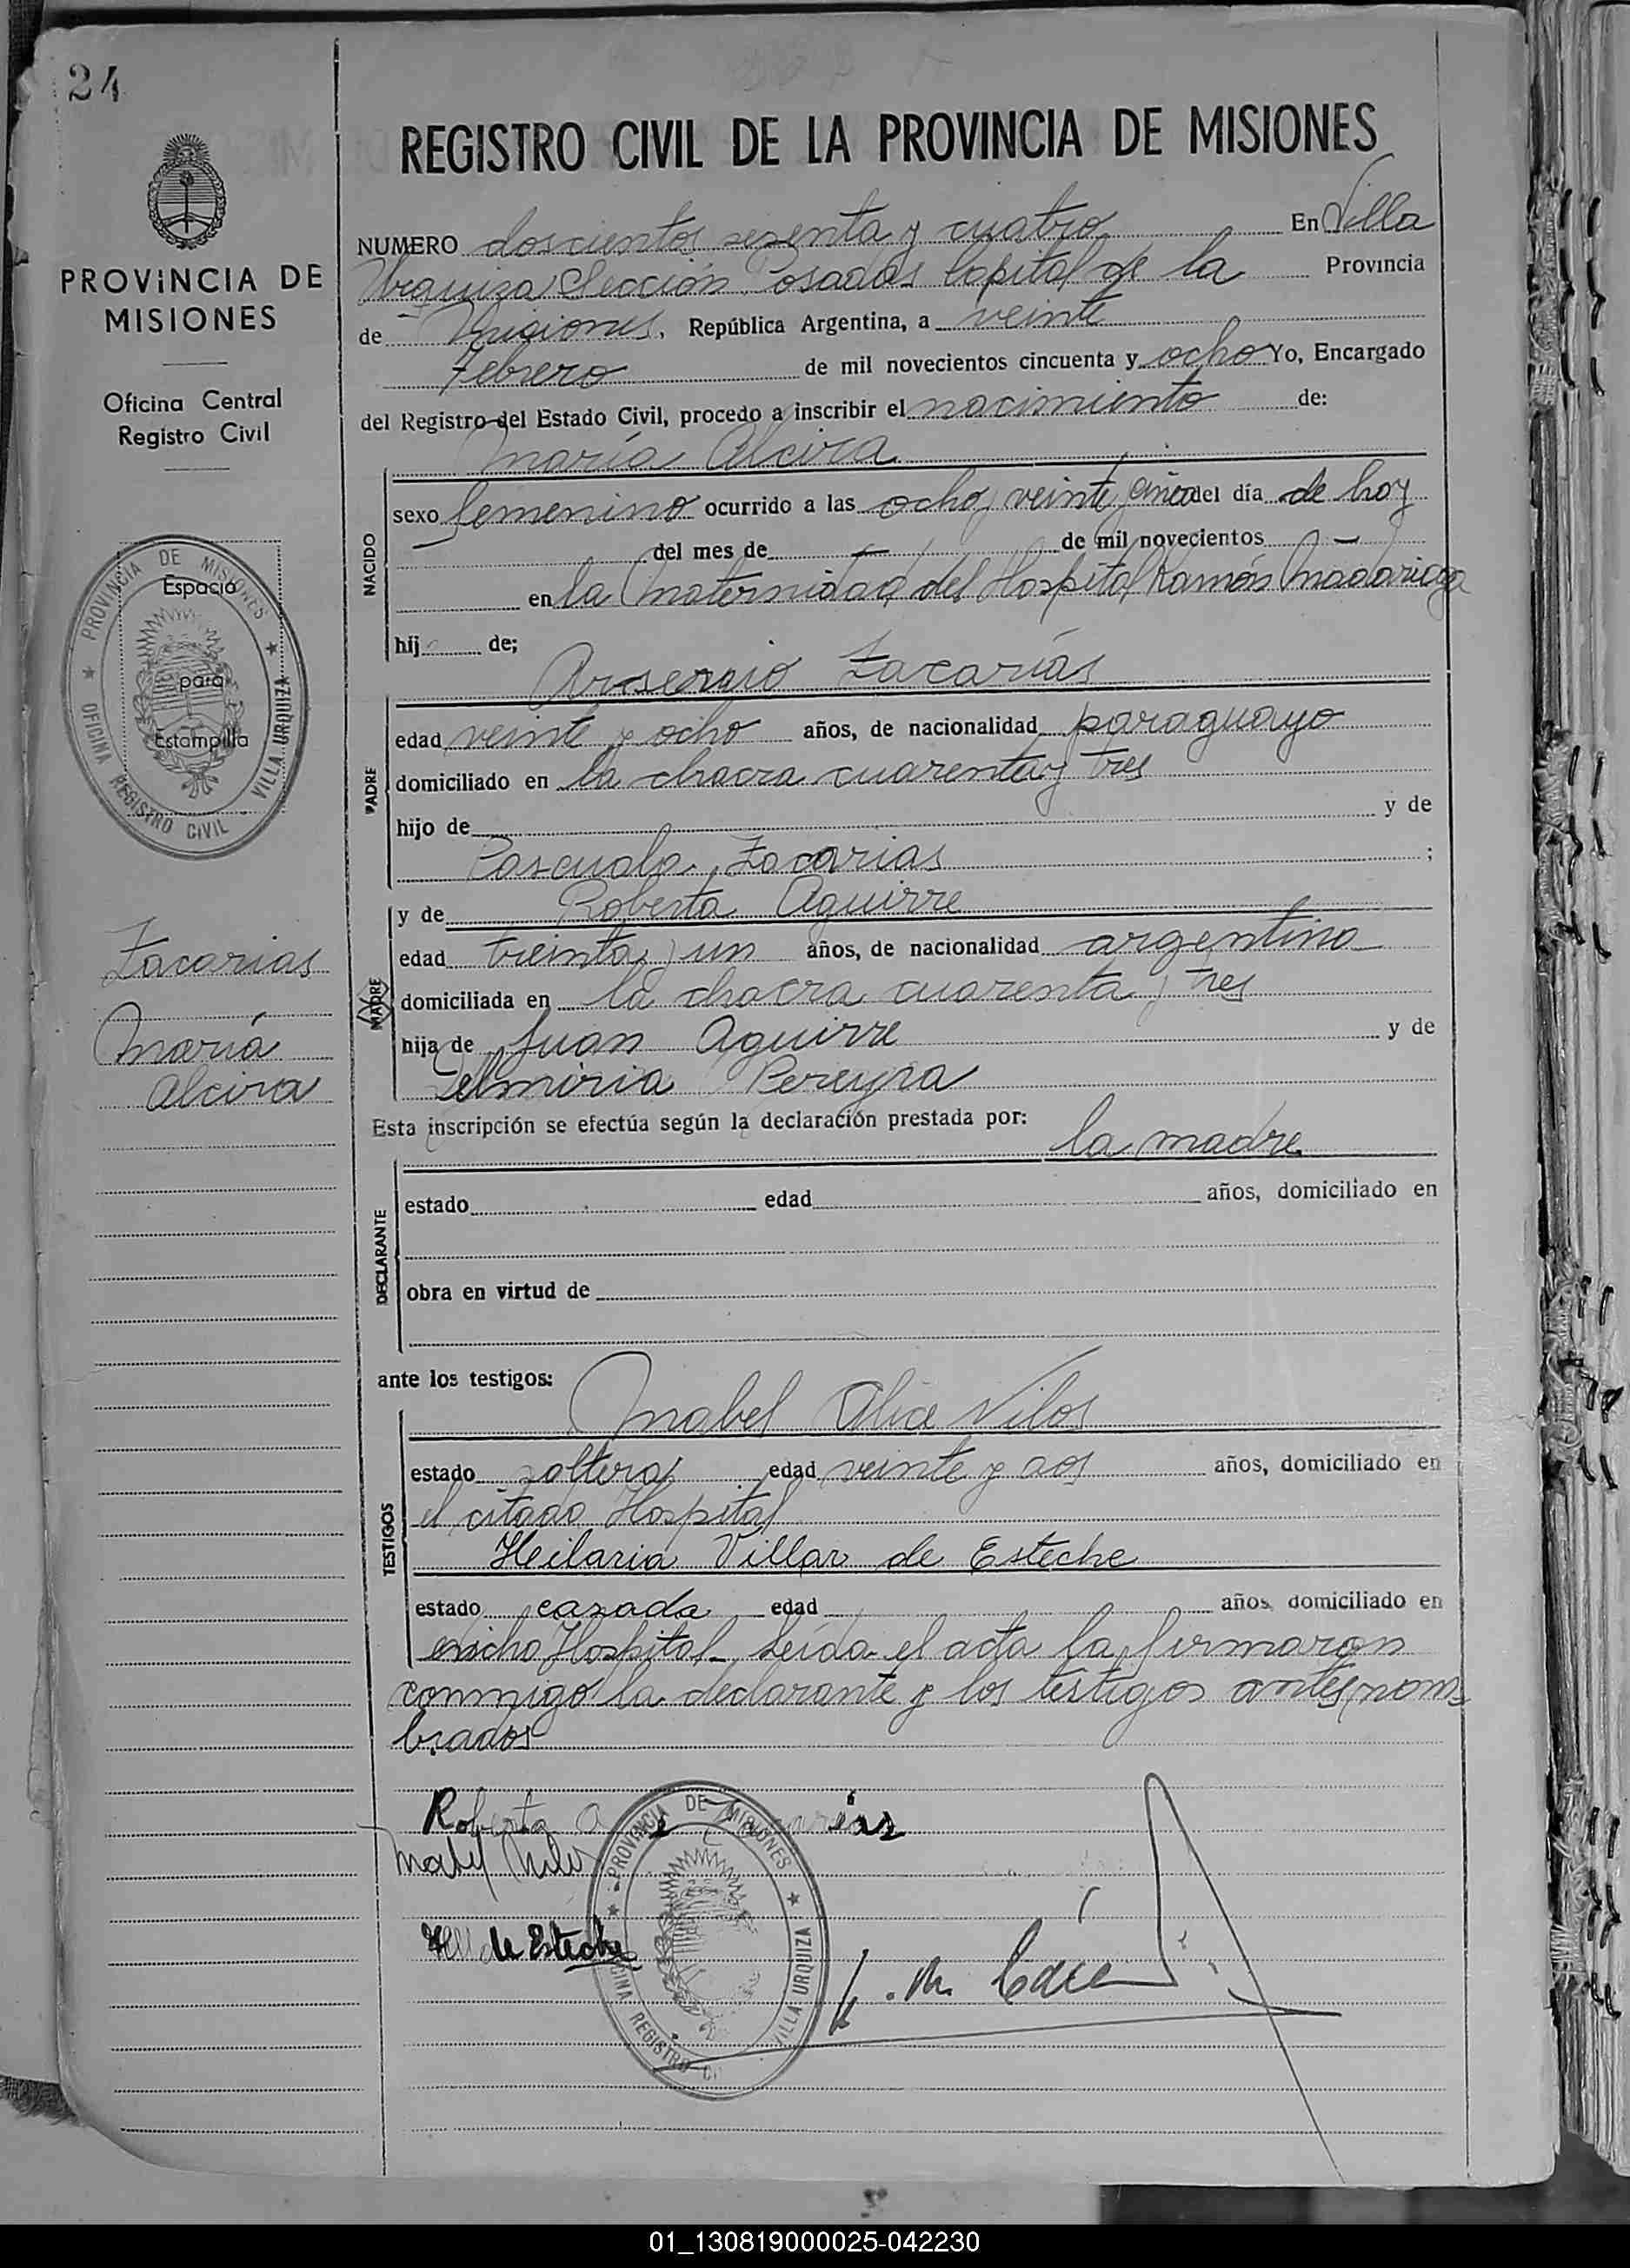 24
REGISTRO CIVIL DE LA PROVINCIA DE MISIONES
PROVINCIA DE
MISIONES
Oficina Central
Registro Civil
PROVINCIA DE MISIONES
OFICINA REGISTRO CIVIL VILLA URQUIZA
Espacio
para
Estampilla
Zacarias
María
Alcira
NUMERO doscientos sesenta y cuatro En Villa
Urquiza Sección Posadas Capital de la Provincia
de Misiones, República Argentina, a veinte
Febrero de mil novecientos cincuenta y ocho Yo, Encargado
del Registro del Estado Civil, procedo a inscribir el nacimiento de:
María Alcira
NACIDO
sexo femenino ocurrido a las ocho y veinte y cinco del día de hoy
del mes de — de mil novecientos —
en la Maternidad del Hospital Ramón Madariaga
hij de;
Arsenio Zacarías
PADRE
edad veinte y ocho años, de nacionalidad paraguayo
domiciliado en la chacra cuarenta y tres
hijo de y de
Pascuala Zacarias ;
y de Roberta Aguirre
MADRE
edad treinta y un años, de nacionalidad argentina
domiciliada en la chacra cuarenta y tres
hija de Juan Aguirre y de
Pereyra
Esta inscripción se efectúa según la declaración prestada por:
la madre
DECLARANTE
estado edad años, domiciliado en
obra en virtud de
ante los testigos:
Mabel Alice Nilos
TESTIGOS
estado soltera edad veinte y dos años, domiciliado en
el citado Hospital
Heilaria Villar de Esteche
estado casada edad años domiciliado en
dicho Hospital - Leída el acta la firmaron
conmigo la declarante y los testigos antes nom=
brados
Roberta
de Esteche
PROVINCIA DE MISIONES
VILLA URQUIZA
01_130819000025-042230